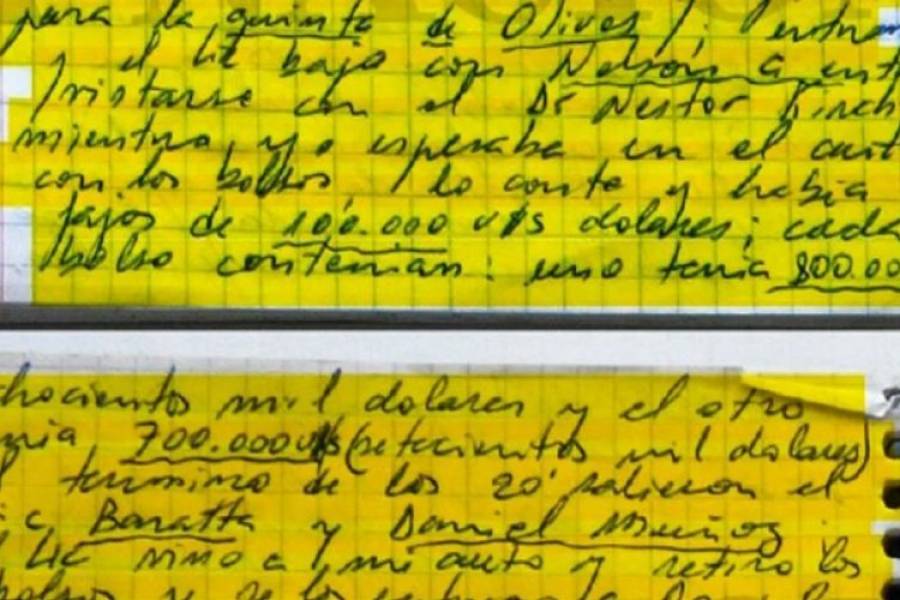 para la quinta de Olivos
y el Lic bajo con Nelson G
entrvistarse con el Dr Nestor Kirch
mientras, yo esperaba en el aut
con los bolsos / lo conte y habia
fajos de 100.000 u$s dolares; cada
bolso contenian: uno tenia 800.00
chocientos mil dolares y el otro
nia 700.000 u$s (setecientos mil dolares)
l termino de los 20' salieron el
ic, Baratta y Daniel Muñoz.
Lic vino a mi auto y retiro los
bolsos y